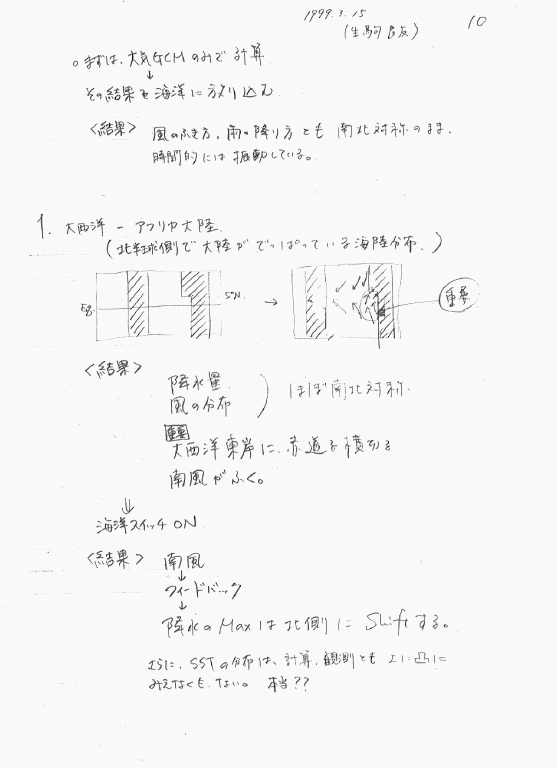 1999.3.15
(生駒 良友)
10
○ まずは、大気GCMのみで計算
↓
その結果を海洋に放り込む
<結果> 風のふき方、雨の降り方とも 南北対称のまま、
時間的には振動している。
1. 大西洋 - アフリカ大陸
(北半球側で大陸がでっぱっている海陸分布。)
Eq. 5°N →
重要
<結果>
降水量
風の分布
ほぼ南北対称、
重要
大西洋東岸に、赤道を横切る
南風がふく。
⇓
海洋スイッチ ON
<結果> 南風
↓
フィードバック
↓
降水の Max は北側に Shift する。
さらに、SSTの分布は、計算、観測とも 上に凸に
みえなくも、ない。 本当??